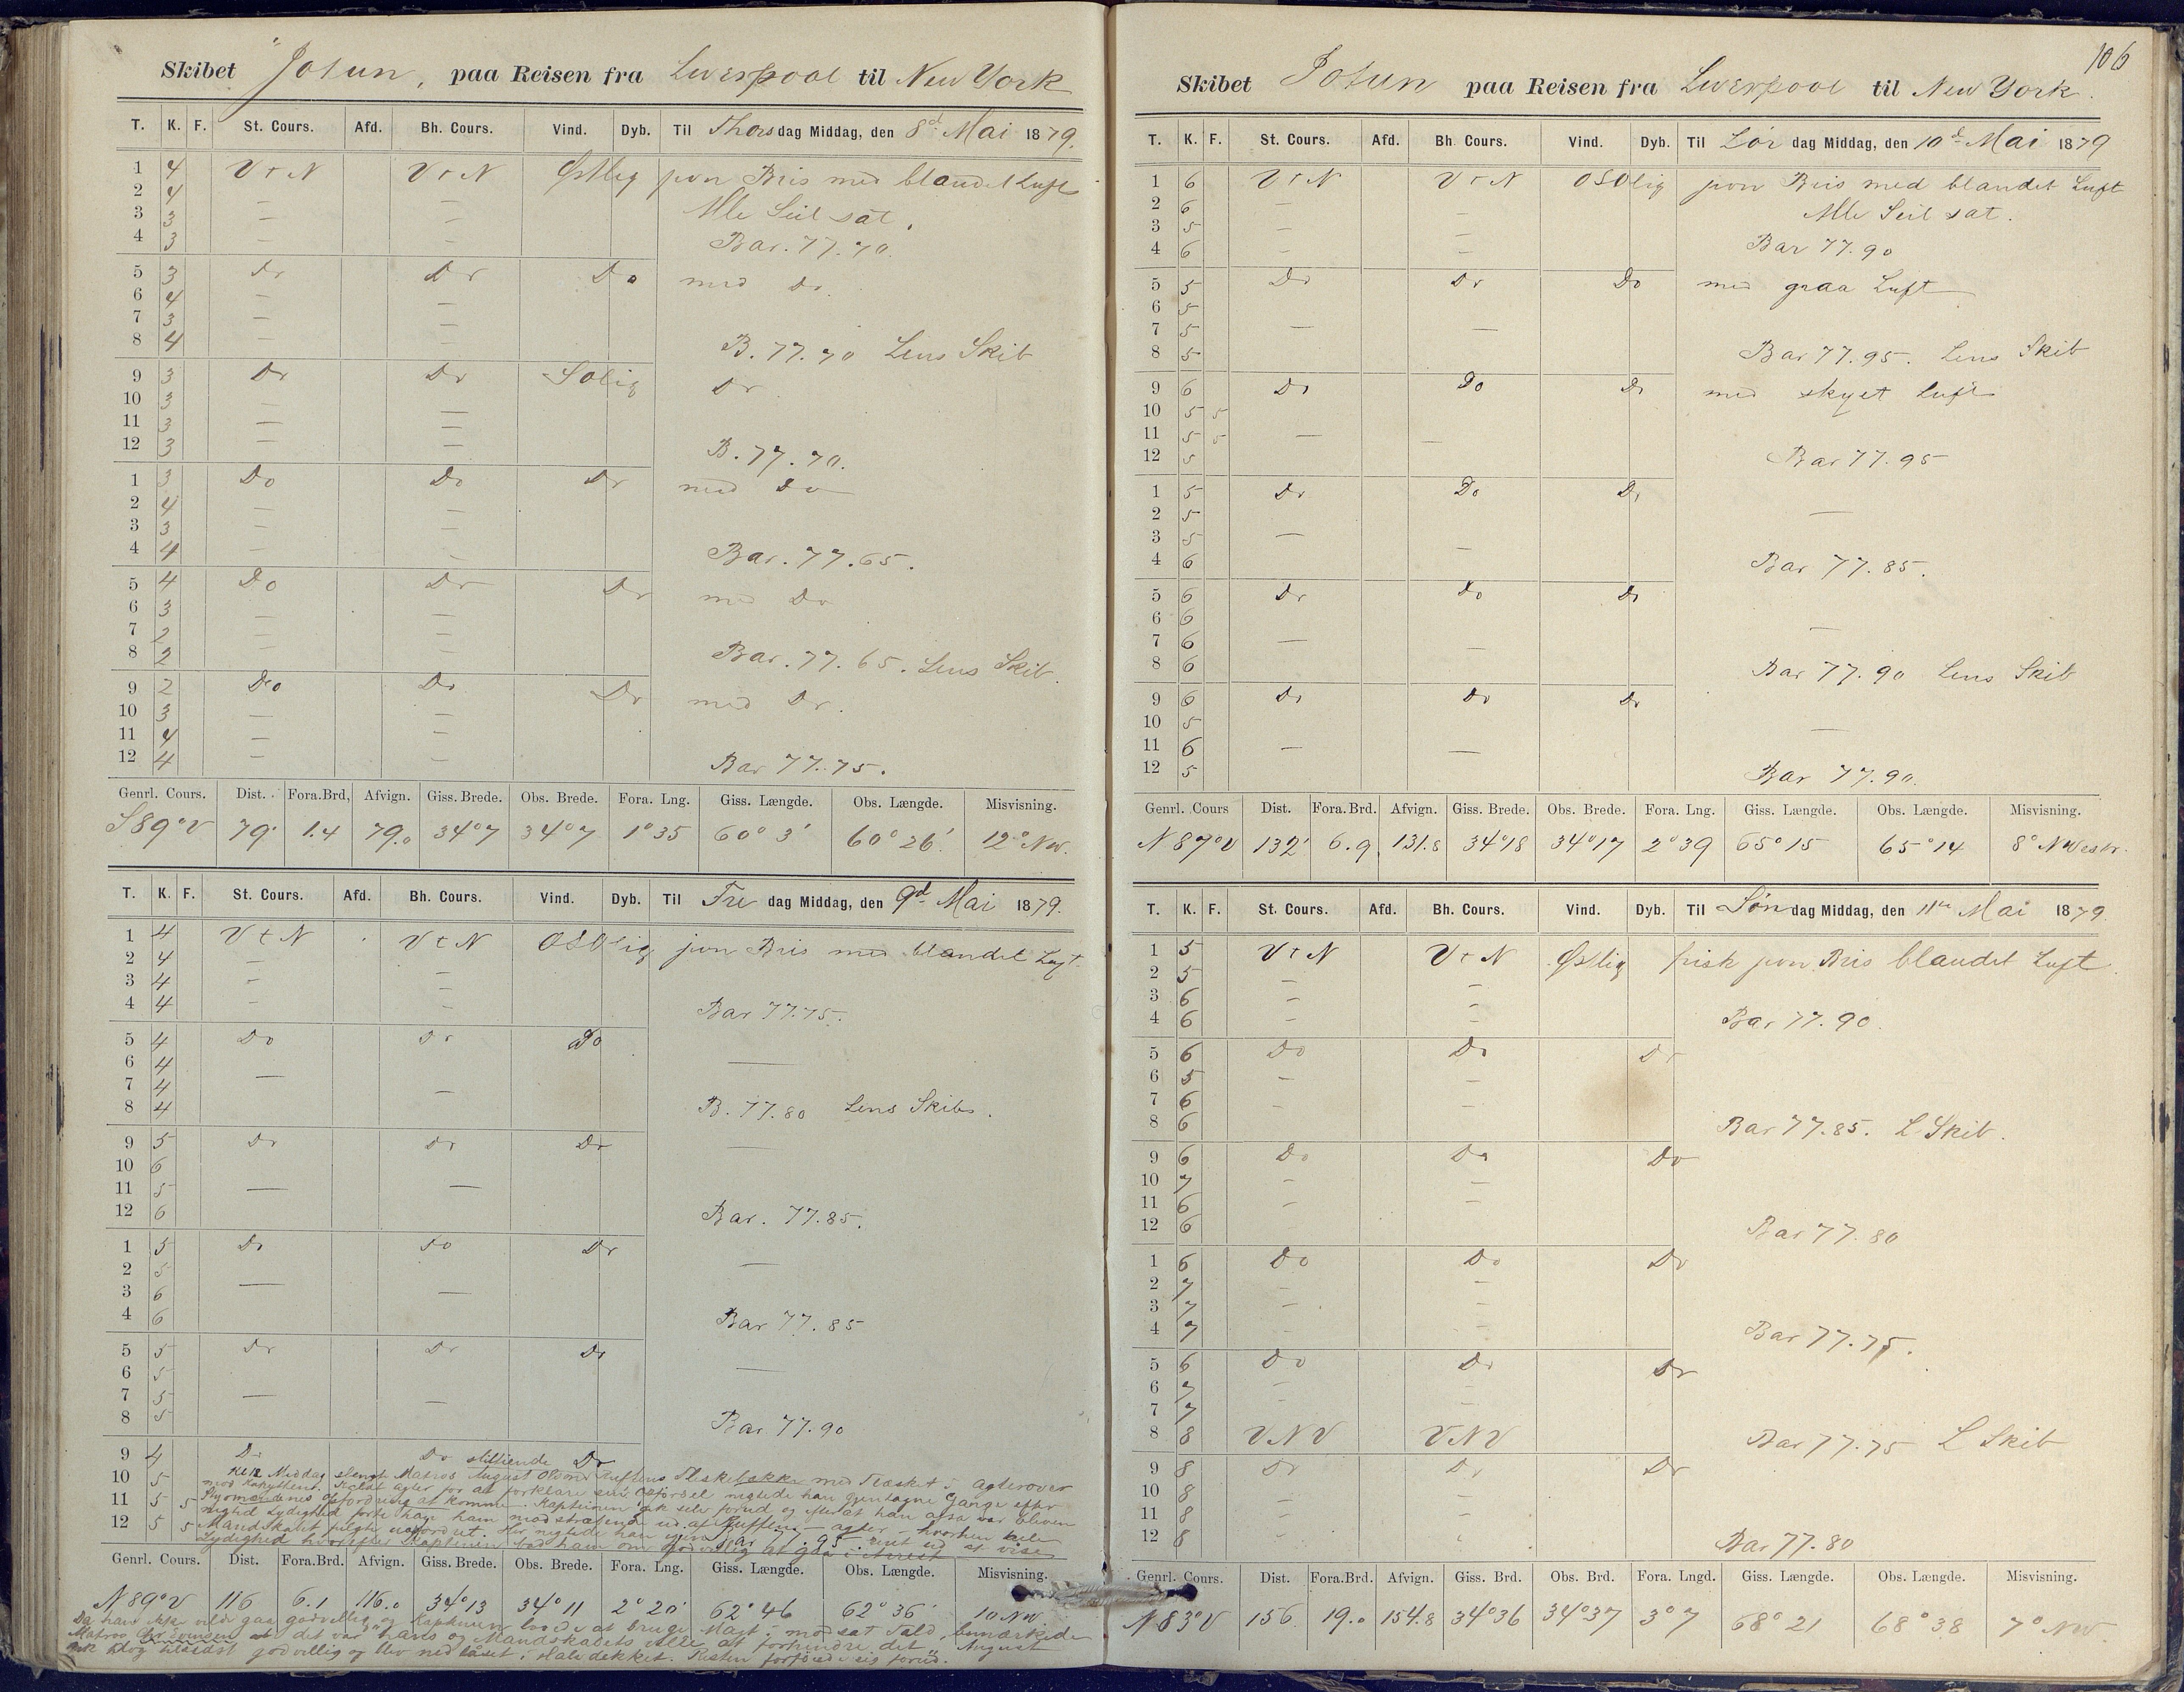 Skibet "Jotun", paa Reisen fra Liverpool til New York
T. K. F. St. Cours. Afd. Bh. Cours. Vind. Dyb. Til Thorsdag Middag, den 8d Mai 1879.
1 4 V t N V t N Østlig jevn Bris med blandet Luft
2 4 — — Alle Seil sat.
3 3 — —
4 3 — — Bar. 77.70.
5 3 Do Do Do med Do.
6 4 — —
7 3 — —
8 4 — — B. 77.70 Lens Skib
9 3 Do Do SOlig Do
10 3 — —
11 3 — —
12 3 — — B. 77.70.
1 3 Do Do Do med Do
2 4 — —
3 3 — —
4 4 — — Bar. 77.65.
5 4 Do Do Do med Do
6 3 — —
7 2 — —
8 2 — — Bar. 77.65. Lens Skib.
9 2 Do Do Do med Do.
10 3 — —
11 4 — —
12 4 — — Bar 77.75.
Genrl. Cours. Dist. Fora.Brd. Afvign. Giss. Brede. Obs. Brede. Fora. Lng. Giss. Længde. Obs. Længde. Misvisning.
S 89° V 79' 1.4 79.0 34°7 34°7 1°35 60° 3' 60° 26'. 12° NW.
T. K. F. St. Cours. Afd. Bh. Cours. Vind. Dyb. Til Fredag Middag, den 9d Mai 1879.
1 4 V t N V t N OSOlig jevn Bris med blandet Luft.
2 4 — —
3 4 — —
4 4 — — Bar 77.75.
5 4 Do Do Do —
6 4
7 4 — —
8 4 B. 77.80 Lens Skib.
9 5 Do Do Do —
10 6
11 5 — —
12 6 Bar. 77.85.
1 5 Do Do Do
2 5 —
3 6 — —
4 6 Bar 77.85
5 5 Do Do Do
6 5 —
7 5 — —
8 5 Bar 77.90
9 4 Do Do stilliende Do
10 5 Kl 12 Middag slengt Matros August Olsen Ruffens Fleskebakke med Flesket i agterover
mod Kahyttens. Kaldt agter for at forklare sin Opførsel nigtede han gjentagne Gange efter
11 5 5 Styrmandens Opfordring at komme. Kapteinen gik selv forud og efterat han ogsaa var bleven
nigtid Lydighed førte han ham modstræbende ud af Ruffen — agter — hvorhen hele
12 5 5 Mandskabet fulgte uopfordret. Her nigtede han
Bar 77.95.
Lydighed hvorefter Kapteinen bad ham om godvillig at gaa i Arrest
Genrl. Cours. Dist. Fora.Brd. Afvign. Giss. Brede. Obs. Brede. Fora. Lng. Giss. Længde. Obs. Længde. Misvisning.
N 89° V 116 6.1 116.0 34°13 34°11 2° 20' 62° 46 62° 36' 10 NW
Da han ikke vilde gaa godvillig og Kapteinen lovede at bruge Magt i modsat Fald, bemærkede
Matros Chr Svensen at det var "hans og Mandskabets Ville at forhindre det" August
gik dog tilsidst godvillig og blev nedlåset i Halvdekket. Resten forføiede sig forud.
106
Skibet Jotun paa Reisen fra Liverpool til New York.
T. K. F. St. Cours. Afd. Bh. Cours. Vind. Dyb. Til Lørdag Middag, den 10d Mai 1879
1 6 V t N V t N OSOlig jevn Bris med blandet Luft
2 6 — Alle Seil sat.
3 5 — —
4 6 — — Bar 77.90
5 5 Do Do Do med graa Luft
6 5
7 5 — —
8 5 Bar 77.95. Lens Skib
9 6 Do Do Do med skyet Luft
10 5 5
11 5 5 — —
12 5 Bar 77.95
1 5 Do Do Do
2 5 —
3 5 —
4 6 — Bar 77.85.
5 6 Do Do Do
6 6 —
7 6 — —
8 6 Bar 77.90 Lens Skib
9 6 Do Do Do
10 5
11 6 — — —
12 5 Bar 77.90.
Genrl. Cours Dist. Fora.Brd. Afvign. Giss. Brede. Obs. Brede. Fora. Lng. Giss. Længde. Obs. Længde. Misvisning.
N 87° V 132' 6.9 131.8 34°18 34°17 2°39 65°15 65°14 8° NWestr.
T. K. F. St. Cours. Afd. Bh. Cours. Vind. Dyb. Til Søndag Middag, den 11te Mai 1879.
1 5 V t N V t N Østlig frisk jevn Bris blandet Luft.
2 5 — —
3 6 — —
4 6 — — Bar 77.90.
5 6 Do Do Do
6 5 — —
7 6 — —
8 6 Bar 77.85. L Skib.
9 6 Do Do Do
10 7 — —
11 6 — —
12 6 Bar 77.80
1 6 Do Do Do
2 7 — —
3 7 — —
4 7 — — Bar 77.75.
5 6 Do Do Do
6 7 — —
7 7 — —
8 8 VNV VNV Bar 77.75 L Skib
9 8 Do Do Do
10 8 — —
11 8 — —
12 8 Bar 77.80
Genrl. Cours. Dist. Fora.Brd. Afvign. Giss. Brd. Obs. Brd. Fora. Lngd. Giss. Længde. Obs. Længde. Misvisning.
N 83° V 156 19.0 154.8 34°36 34°37 3° 7 68° 21 68° 38 7° NW.